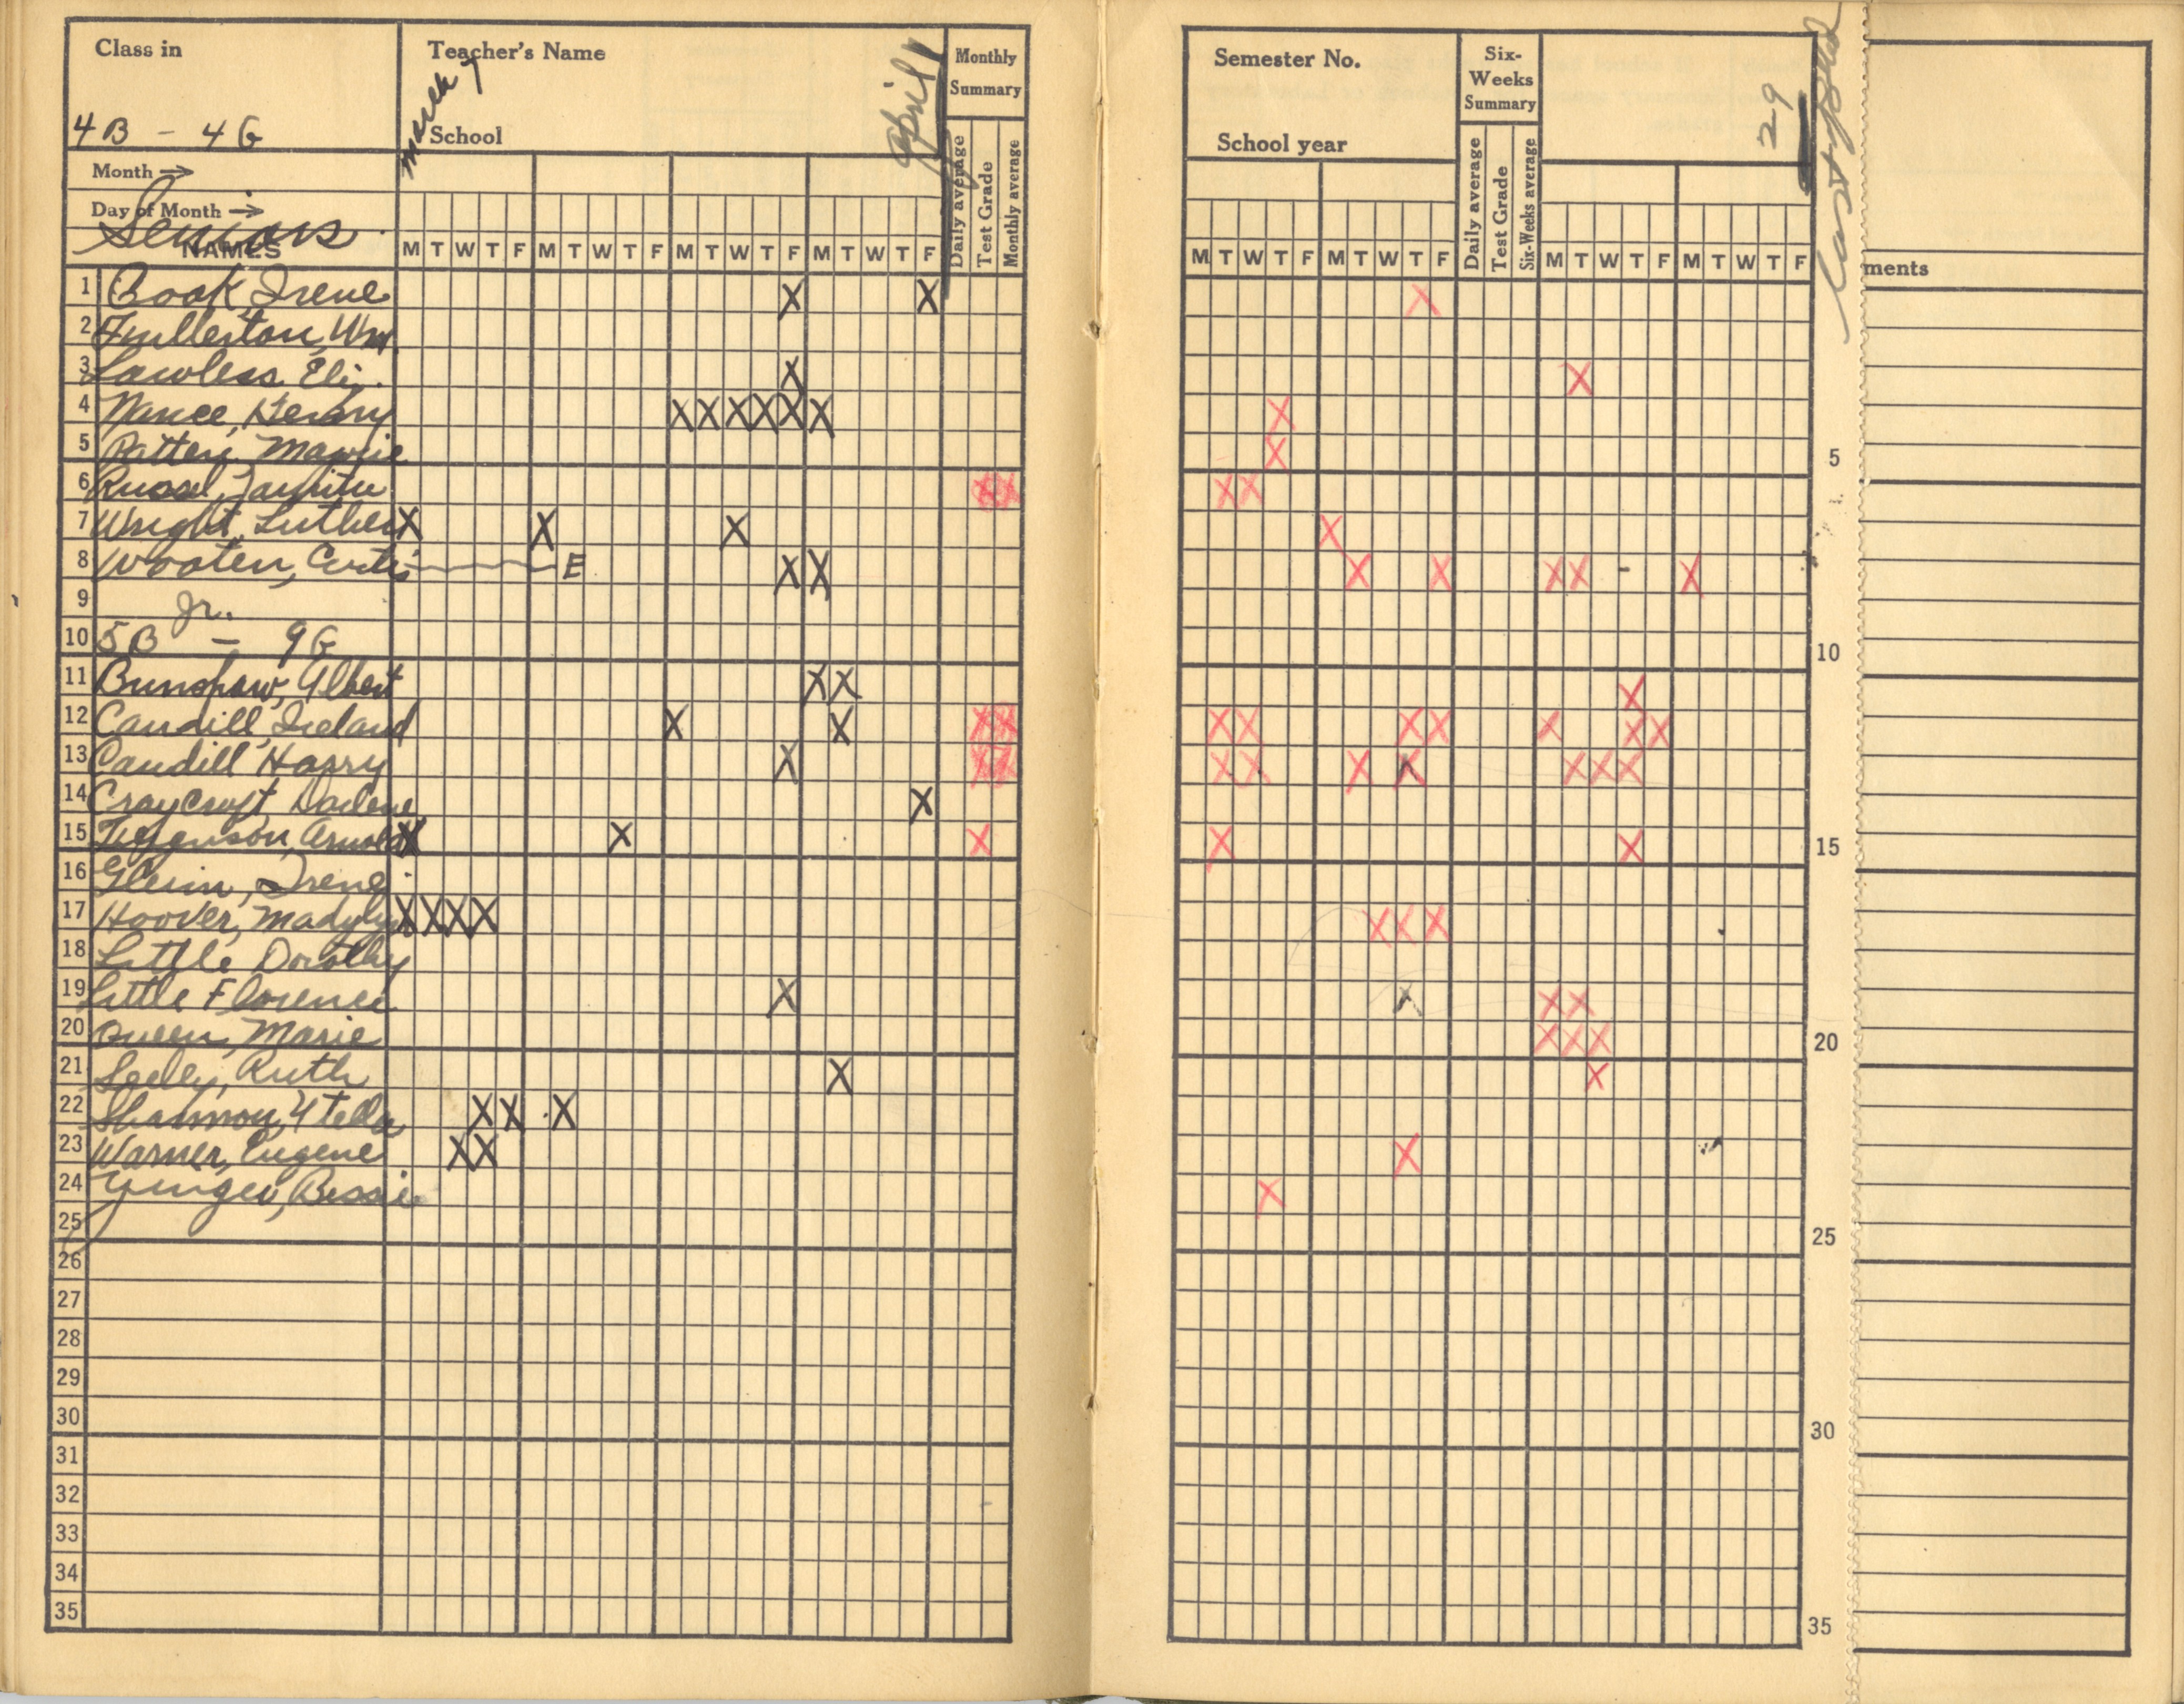 Class in
4B - 4G
Teacher's Name
March 7
School
April 1
Monthly Summary
Month →
Day of Month →
Seniors
NAMES
M T W T F M T W T F M T W T F M T W T F
Daily average
Test Grade
Monthly average
Semester No.
School year
Six-Weeks Summary
29
Last of
M T W T F M T W T F
Daily average
Test Grade
Six-Weeks average
M T W T F M T W T F
ments
1 Cook, Irene X X X
2 Fullerton, Wm.
3 Lawless Eliz. X X
4 Nance, Henry X X X X X X X
5 Patten, X 5
6 XX XX
7 Wright, Luther X X X X
8 Wooten, Curtis E X X X X X X X
9 Jr.
10 5B - 9G 10
11 Albert X X X
12 Caudill, Ireland X X XX X X X X X X X
13 Caudill Harry X XX X X X X X X X
14 Craycroft, Darlene X
15 Arnold X X X X X 15
16 Gleim, Irene
17 Hoover, Madylyn X X X X X X X
18 Little Dorothy
19 Little Florence X X X X
20 Queen, Marie X X X 20
21 Seeley, Ruth X X
22 Shannon, X X X
23 Warner, Eugene X X X
24 Yinger, Bessie X
25 25
26
27
28
29
30 30
31
32
33
34
35 35